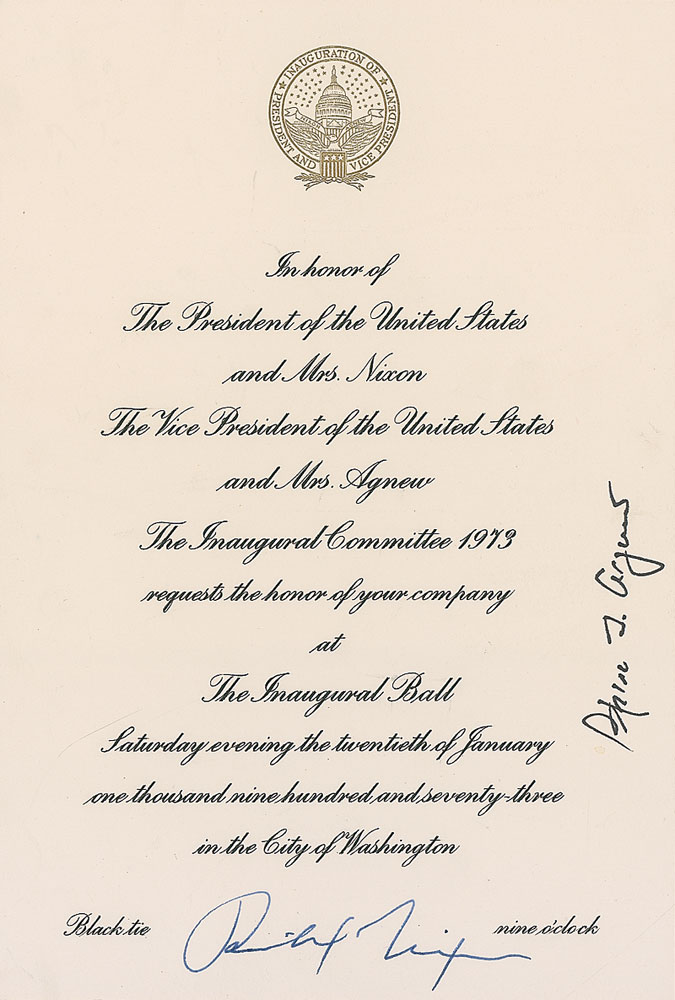 ★ INAUGURATION OF ★
PRESIDENT AND VICE PRESIDENT
In honor of
The President of the United States
and Mrs. Nixon
The Vice President of the United States
and Mrs. Agnew
The Inaugural Committee 1973
requests the honor of your company
at
The Inaugural Ball
Saturday evening the twentieth of January
one thousand nine hundred and seventy-three
in the City of Washington
Black tie
nine o'clock
Richard Nixon
Spiro T. Agnew